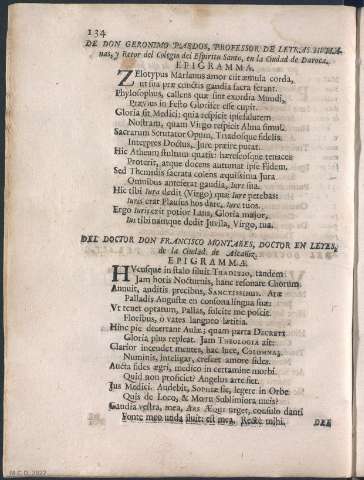 134
DE DON GERONIMO PARDOS, PROFESSOR DE LETRAS HUMA-
nas, y Retor del Colegio del Espiritu Santo, en la Ciudad de Daroca.
EPIGRAMMA.
ZElotypus Marianus amor cùm æmula corda,
ut sua præ cunctis gaudia sacra ferant.
Phylosophus, callens quæ sint exordia Mundi,
Prævius in Festo Gloriter esse cupit.
Gloria sit Medici: quia respicit ipse salutem
Nostram, quam Virgo respicit Alma simul.
Sacrarum Scrutator Opum, Triadosque fidelis
Interpres Doctus, Jure præire putat.
Hic Atheum stultum quatit: hæreticosque tenaces
Proterit, atque docens autumat ipse Fidem.
Sed Themidis sacrata colens æquissima Jura
Omnibus anteferat gaudia, Iure sua.
Hic tibi Iura dedit (Virgo) quæ Iure petebas:
Iuris erat Plausus hos dare, Iure tuos.
Ergo Iuris erit potior Laus, Gloria major,
Ut tibi namque dedit Juvila, Virgo, tua.
DEL DOCTOR DON FRANCISCO MONTAÑES, DOCTOR EN LEYES,
de la Ciudad de Alcañiz.
EPIGRAMMA.
HUcusque in stalo siluit TRADITIO, tandem
Jam horis Nocturnis, hanc resonare Chorum
Annuit, auditis precibus, SANCTISSIMUS. Aræ
Palladis Augustæ en consona lingua sua:
Ut tenet optatum, Pallas, fulcite me poscit
Floribus, ô vates langueo lætitia.
Hinc pie decertant Aulæ; quam parta DECRETI
Gloria plus repleat. Jam THEOLOGIA ait:
Clarior incendet mentes, hac luce, COLUMNA;
Numinis, inteligar, crescet amore fides.
Aucta fides ægri, medico in certamine morbi.
Quid non proficiet? Angelus arte fiet.
Jus Medici. Audebit, SOPHIÆ fic, legere in Orbe
Quis de Loco, & Motu Sublimiora meis?
Gaudia vestra, mea, ARS ÆQUI urget, consulo danti
Fonte meo unda fluit: est mea. Reste mihi.
DEL
M.C.D. 2022